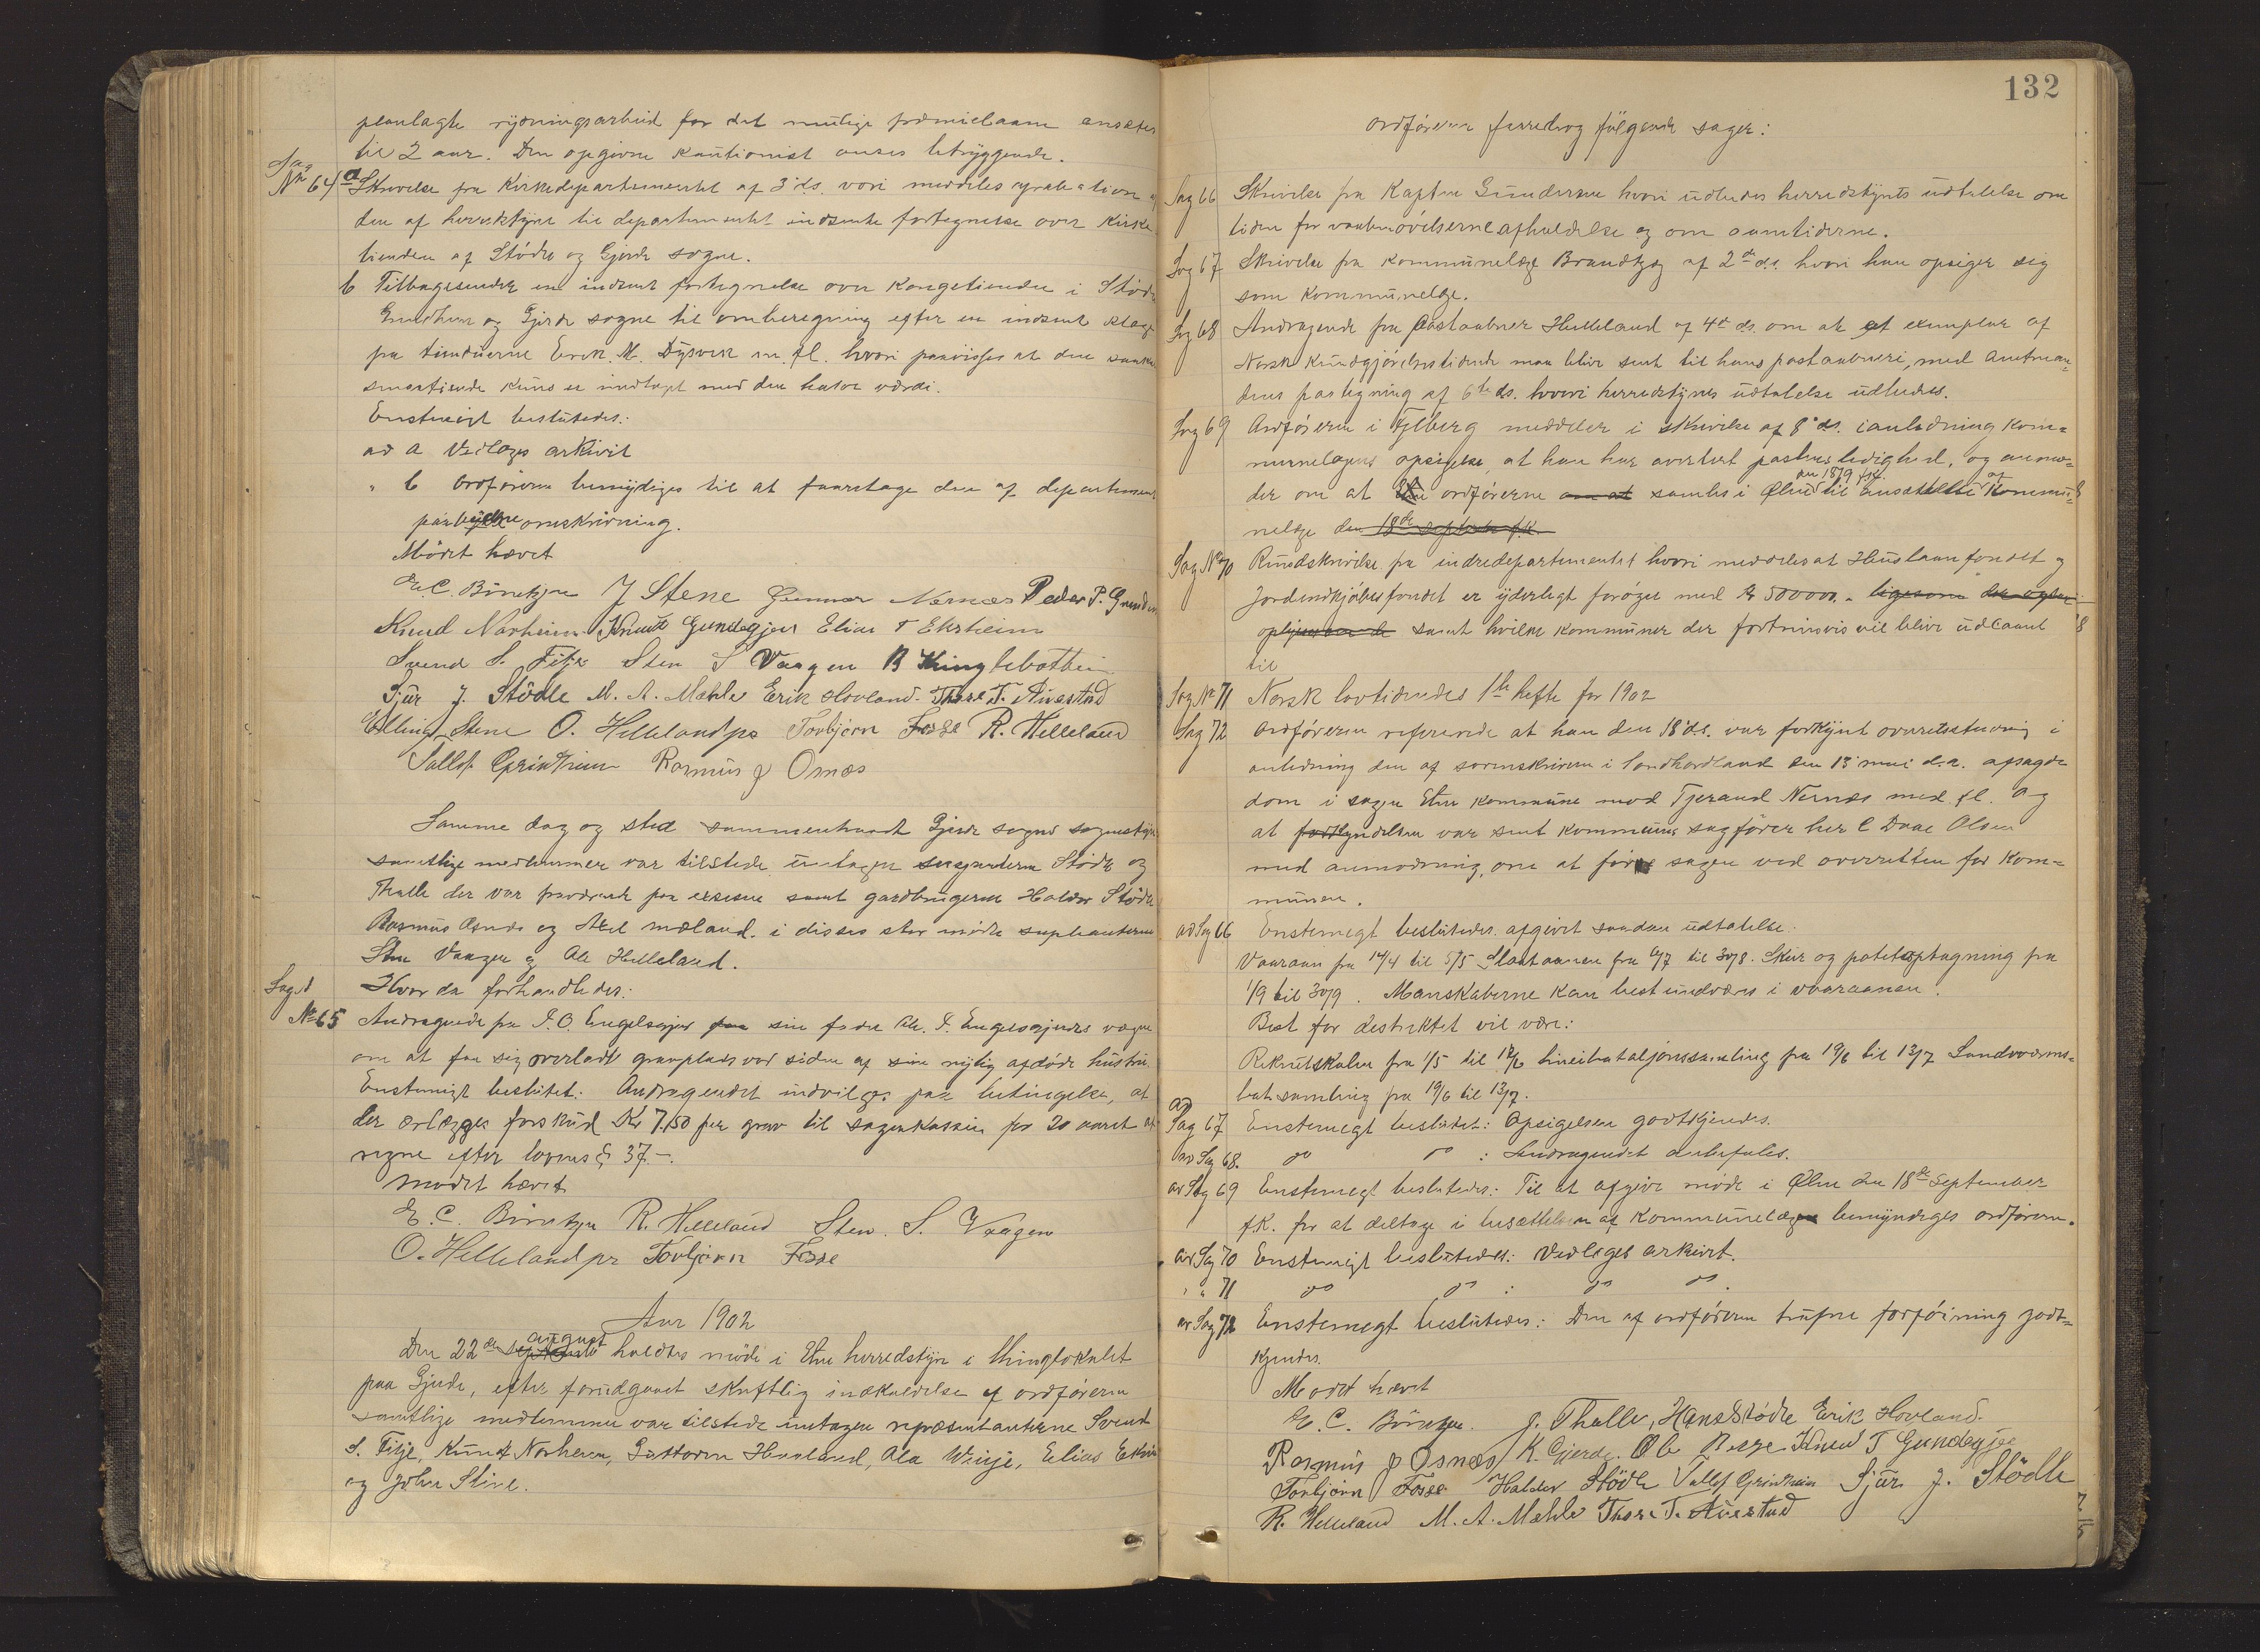 planlagte rydningsarbeid for det mulige præmielaan ansættes
til 2 aar. Den opgivne kautionist anses betryggende.
Sag
No 64 a Skrivelse fra Kirkedepartementet af 3' ds. vori meddeles approbation af
den af herredstyre til departementet indsente fortegnelse over Kirke
tienden af Stödle og Gjerde sogne.
b Tilbagesender en indsent fortegnelse over Kongetienden i Stödle
Grindheim og Gjerde sogne til omberegning efter en indsent klage
fra Erik M. Dysvik m. fl. hvori paavises at den
smørtiende kuns er medtaget med den halve værdi.
Enstemigt beslutedes:
ad a Vedlages arkivet
" b Ordføreren bemyndiges til at foaretage den af departementet
omskrivning.
Mödet hævet
E. C. Börretzen J Stene Gunnar Nernæs Peder P. Grindheim
Knud Norheim Knut Gundegjer Elias T Ekrheim
Svend S. Fitje Sten S Vaagen B Thinglebotten
Sjur J. Stödle M. A. Mæhle Erik Hovland Thore T. Aurestad
Elling Stene O. Hellelandps Torbjørn Fosse R. Helleland
Tallef Grindheim Rasmus J Osnæs
Samme dag og sted sammentraadt Gjerde sogns sognestyre
samtlige medlemmer var tilstede untagen Stödle og
Thalle der var fraværende paa samt gardbrugerne Haldor Stödle
Rasmus Osnæs og Axel Mæland. i disses sted mödte supleanterne
Sten Vaagen og Ole Helleland.
Sag
Hvor da forhandledes:
No 65 Andragende fra P. O. Engelsgjer paa sin fader Ole. P. Engelsgjerdes vegne
om at faa sig overladt gravplads ved siden af sin nylig afdøde hustru
Enstemigt beslutet: Andragendet indvilges paa betingelse, at
der erlægges forskud Kr 7.50 per grav til sognekassen for 20 aaret at
regne efter lovens § 37.-.
Mödet hævet
E. C. Börretzen R. Helleland Sten. S. Vaagen
O. Hellelandps Torbjørn Fosse
Aar 1902
august
Den 22de holdtes møde i Etne herredstyre i thinglokalet
paa Gjerde, efter forudgaaet skriftlig indkaldelse af ordføreren
samtlige medlemmer var tilstede untagen repræsentanterne Svend
S. Fitje, Knut Norheim, Guttorm Hovland, Ola Winje, Elias Ekrheim
og John Stene.
132
ordføreren foredrog følgende sager:
Sag 66 Skrivelse fra Kaptein Gundersen hvori udbedes herredstyrets udtalelse om
tiden for vaabenövelserne afholdelse og om aanntiderne.
Sag 67 Skrivelse fra kommunelæge Brandtzæg af 2de ds. hvori han opsiger sig
som kommunelæge.
Sag 68 Andragende fra Postaabner Helleland af 4de ds. om at et exemplar af
Norsk kundgjørelsestidende maa blive sent til hans postaabneri, med Amtman-
dens paategning af 6te ds. hvori herredstyres udtalelse udbedes.
Sag 69 Ordføreren i Fjelberg meddeler i skrivelse af 8' ds. i anledning kom-
munelægens opsigelse, at han har averteret postens ledighed, og anmo-
den 18/9 fk. af
der om at ordførerne om at samles i Ølen til ansættelse Kommu-
nelæge den 18de september f.k.
Sag No 70 Rundskrivelse fra indredepartementet hvori meddeles at Huslaanfondet og
Jordindkjøbesfondet er yderlegt forøget med kr 500000.- ligesom
samt hvilke kommuner der fortrinsvis vil blive udlaant
til
Sag No 71 Norsk lovtidendes 1ste hefte for 1902
Sag 72 Ordføreren refererede at han den 18' ds. var forkynt overetsstevning i
anledning den af sorenskriveren i Søndhordland den 13' mai d.a. afsagde
dom i sagen Etne kommune mod Tjerand Nernæs med fl. og
at forkyndelsen var sent kommunens sagfører her C Daae Olsen
med anmodning, om at føre sagen ved overretten for kom-
munen.
ad Sag 66 Enstemegt beslutedes afgivet saadan udtalelse:
Vaaraann fra 14/4 til 5/5 Slaataannen fra 6/7 til 30/8. Skur og potetoptagning fra
1/9 til 30/9. Manskaberne kan best undværes i vaaraannen.
Best for destriktet vil være:
Rekrutskolen fra 1/5 til 18/6 lineibataljonssamling fra 19/6 til 13/7 Landværns-
bat. samling fra 19/6 til 13/7.
ad
Sag 67 Enstemegt beslutet: Opsigelsen godtkjendes.
ad Sag 68. do do : Andragendet anbefales.
ad Sag 69 Enstemegt beslutedes: Til at afgive møde i Ølen den 18de September
fk. for at deltage i besættelsen af kommunelæge bemyndiges ordføreren.
ad Sag 70 Enstemigt beslutedes: Vedlages arkivet.
" " 71 do do : do do.
ad Sag 72 Enstemegt beslutedes: Den af ordføreren trufne forføining godt-
kjendes.
Mødet hævet
E. C. Börretzen. J. Thalle, Hans Stødle Erik Hovland.
Rasmus J Osnæs K. Gjerde. Ole Berge Knud T Gundegjer
Torbjørn Fosse Haldor Stödle Tallef Grindheim Sjur J. Stödle
R. Helleland M. A. Mæhle Thore T. Aurestad